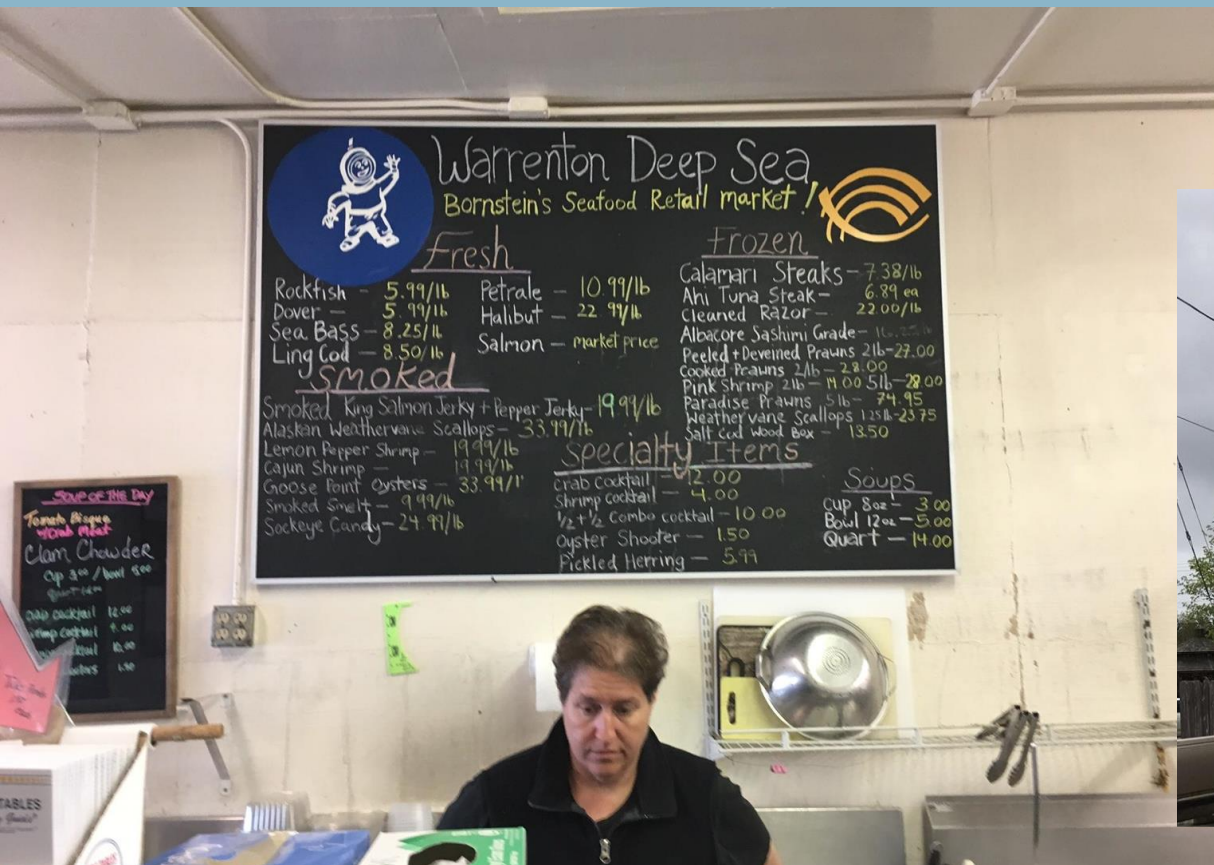 Warrenton Deep Sea
Bornstein's Seafood Retail market!
Fresh
Rockfish - 5.99/lb
Dover - 5.99/lb
Sea Bass - 8.25/lb
Ling Cod - 8.50/lb
Petrale - 10.99/lb
Halibut - 22 99/lb
Salmon - market price
Smoked
Smoked King Salmon Jerky + Pepper Jerky - 19.99/lb
Alaskan Weathervane Scallops - 33.99/lb
Lemon Pepper Shrimp - 19.99/lb
Cajun Shrimp - 19.99/lb
Goose Point Oysters - 33.99/l
Smoked Smelt - 9.99/lb
Sockeye Candy - 24.99/lb
Frozen
Calamari Steaks - 7.38/lb
Ahi Tuna Steak - 6.89 ea
Cleaned Razor - 22.00/lb
Albacore Sashimi Grade -
Peeled + Deveined Prawns 2lb - 27.00
Cooked Prawns 2/lb - 28.00
Pink Shrimp 2lb - 14.00 5lb - 28.00
Paradise Prawns 5lb - 74.95
Weathervane Scallops 1.25lb - 23.75
Salt Cod Wood Box - 13.50
Specialty Items
Crab Cocktail - 12.00
Shrimp cocktail - 4.00
1/2 + 1/2 Combo cocktail - 10.00
Oyster Shooter - 1.50
Pickled Herring - 5.99
Soups
Cup 8oz - 3.00
Bowl 12oz - 5.00
Quart - 14.00
SOUP OF THE DAY
Tomato Bisque
w/Crab Meat
Clam Chowder
Cup 3.00 / bowl 5.00
Crab cocktail 12.00
cocktail 4.00
cocktail 10.00
1.50
TABLES